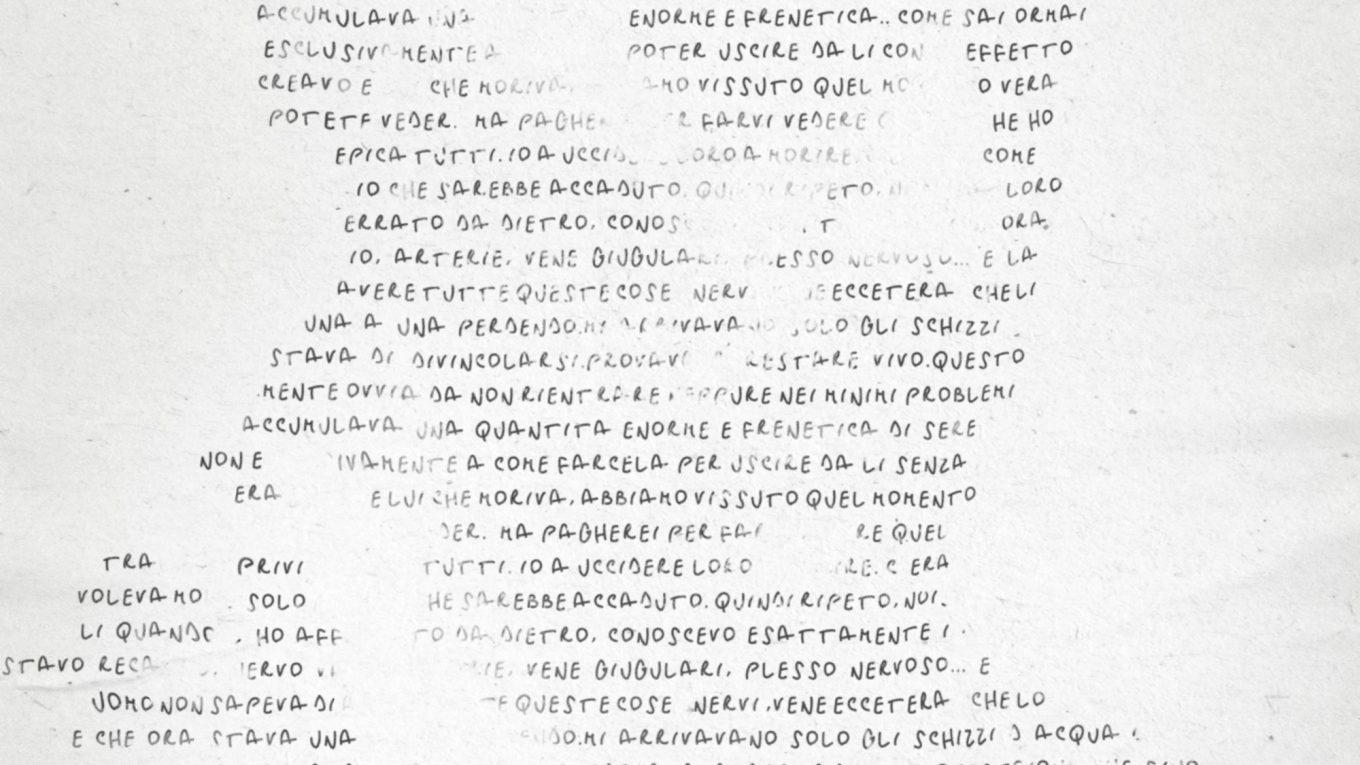 ACCUMULAVA UNA ENORME E FRENETICA.. COME SAI ORMAI
ESCLUSIVAMENTE A POTER USCIRE DA LI CON EFFETTO
CREAVO E CHE MORIVA. AMO VISSUTO QUEL MO O VERA
POTETE VEDER. MA PAGHE R FARVI VEDERE C HE HO
EPICA TUTTI. IO A UCCID LORO A MORIRE. COME
IO CHE SAREBBE ACCADUTO. QUINDI RIPETO. N LORO
ERRATO DA DIETRO. CONOS . T ORA.
IO. ARTERIE. VENE GIUGULARI. PLESSO NERVOSO... E LA
AVERE TUTTE QUESTE COSE NERV E ECCETERA CHE LI
UNA A UNA PERDENDO. MI ARRIVAVANO SOLO GLI SCHIZZI
STAVA DI DIVINCOLARSI. PROVAVA RESTARE VIVO. QUESTO
MENTE OVVIA DA NON RIENTRARE NEPPURE NEI MINIMI PROBLEMI
ACCUMULAVA UNA QUANTITA ENORME E FRENETICA DI SERE
NON E IVAMENTE A COME FARCELA PER USCIRE DA LI SENZA
ERA E LUI CHE MORIVA. ABBIAMO VISSUTO QUEL MOMENTO
DER. MA PAGHEREI PER FA RE QUEL
TRA PRIVI TUTTI. IO A UCCIDERE LORO IRE. C ERA
VOLEVAMO SOLO HE SAREBBE ACCADUTO. QUINDI RIPETO. NOI.
LI QUANDO . HO AFF TO DA DIETRO. CONOSCEVO ESATTAMENTE I
STAVO RECA ERVO RIE. VENE GIUGULARI. PLESSO NERVOSO... E
UOMO NON SAPEVA DI TE QUESTE COSE NERVI. VENE ECCETERA CHE LO
E CHE ORA STAVA UNA NDO. MI ARRIVAVANO SOLO GLI SCHIZZI D ACQUA